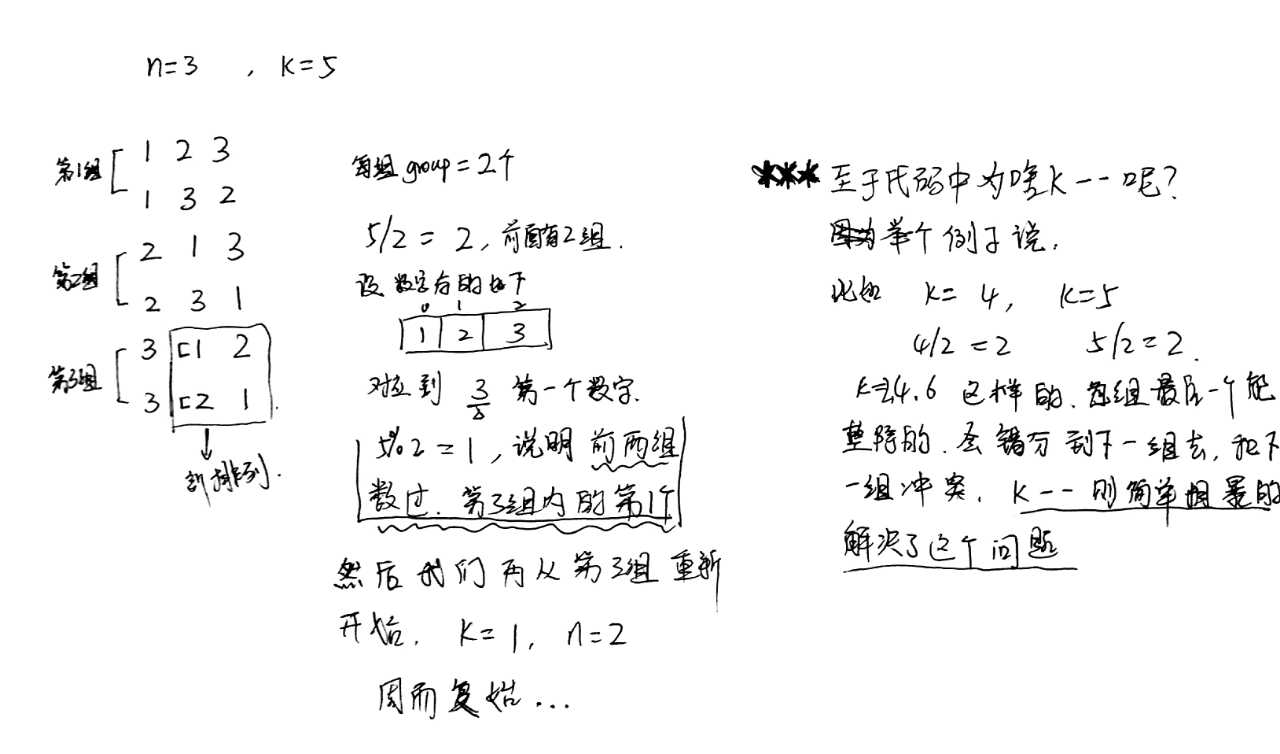 n=3 , k=5
第1组 1 2 3
1 3 2
第2组 2 1 3
2 3 1
第3组 3 1 2
3 2 1
新排列.
每组group=2个
5/2=2, 前面有2组.
设 数字存的如下
0 1 2
1 2 3
对应到 3 第一个数字.
5%2=1, 说明前两组
数过. 第3组内的第1个
然后我们再从第3组重新
开始. k=1, n=2
周而复始...
***至于代码中为啥k--呢?
因为举个例子说,
比如 k=4, k=5
4/2=2 5/2=2.
k=2.4.6 这样的. 每组最后一个能
整除的. 会错分到下一组去, 和下
一组冲突. k--则简单粗暴的
解决了这个问题